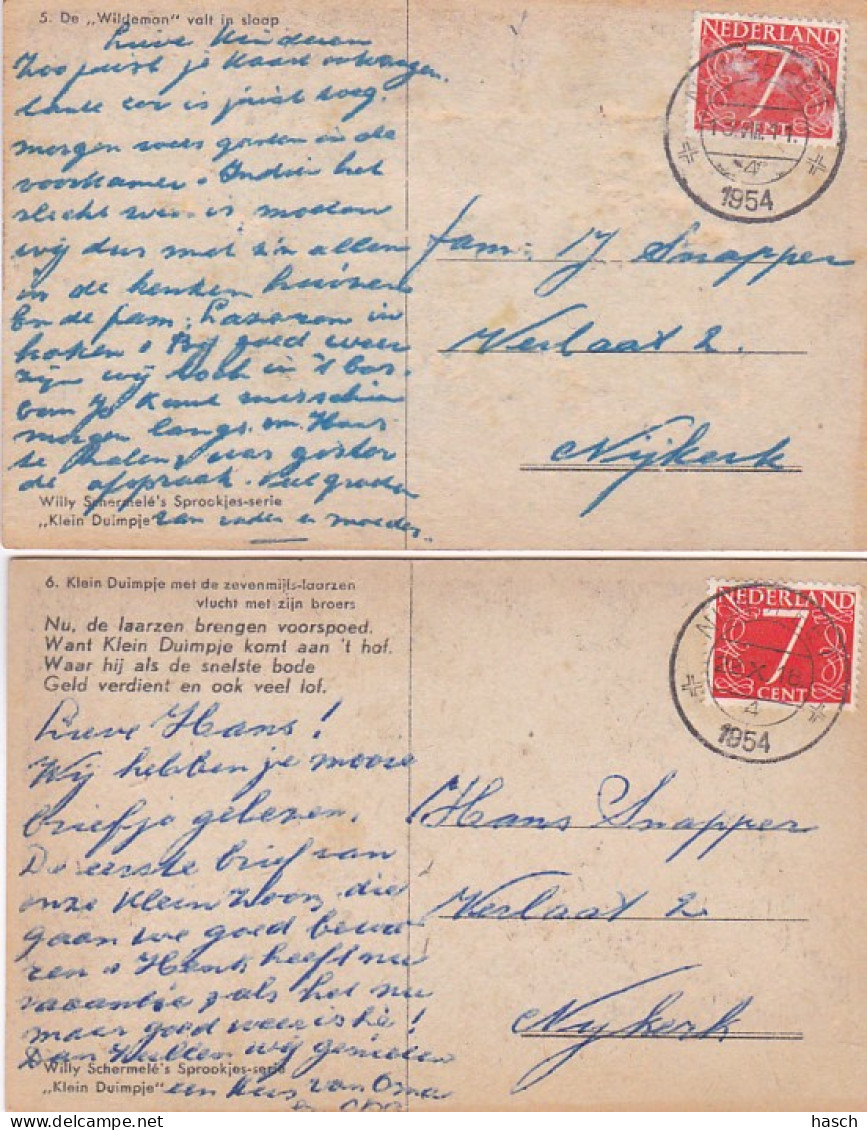 5. De „Wildeman” valt in slaap
Lieve Kinderen
Zoo juist je kaart ontvangen.
tante Cor is juist weg.
morgen weer gasten in de
voorkamer. Indien het
slecht weer is moeten
wij dus met z'n allen
in de keuken huizen
En de fam: in
koken. Bij goed weer
zijn wij toch in 't bos.
oom Jo komt misschien
morgen langs om Hans
te halen, was gister
de afspraak. Veel groeten
van vader en moeder.
Willy Schermelé's Sprookjes-serie
„Klein Duimpje”
NEDERLAND
7
CENT
4
1954
fam: Snapper
Verlaat 2.
Nijkerk
6. Klein Duimpje met de zevenmijls-laarzen
vlucht met zijn broers
Nu, de laarzen brengen voorspoed.
Want Klein Duimpje komt aan 't hof.
Waar hij als de snelste bode
Geld verdient en ook veel lof.
Lieve Hans!
Wij hebben je mooie
briefje gelezen.
De eerste brief van
onze Klein Zoon, die
gaan we goed bewa
ren. Henk heeft nu
vacantie, als het nu
maar goed weer is hè!
Dan zullen wij genieten
een kus van Oma
en Opa
Willy Schermelé's Sprookjes-serie
„Klein Duimpje”
NEDERLAND
7
CENT
4
1954
Hans Snapper
Verlaat 2
Nykerk